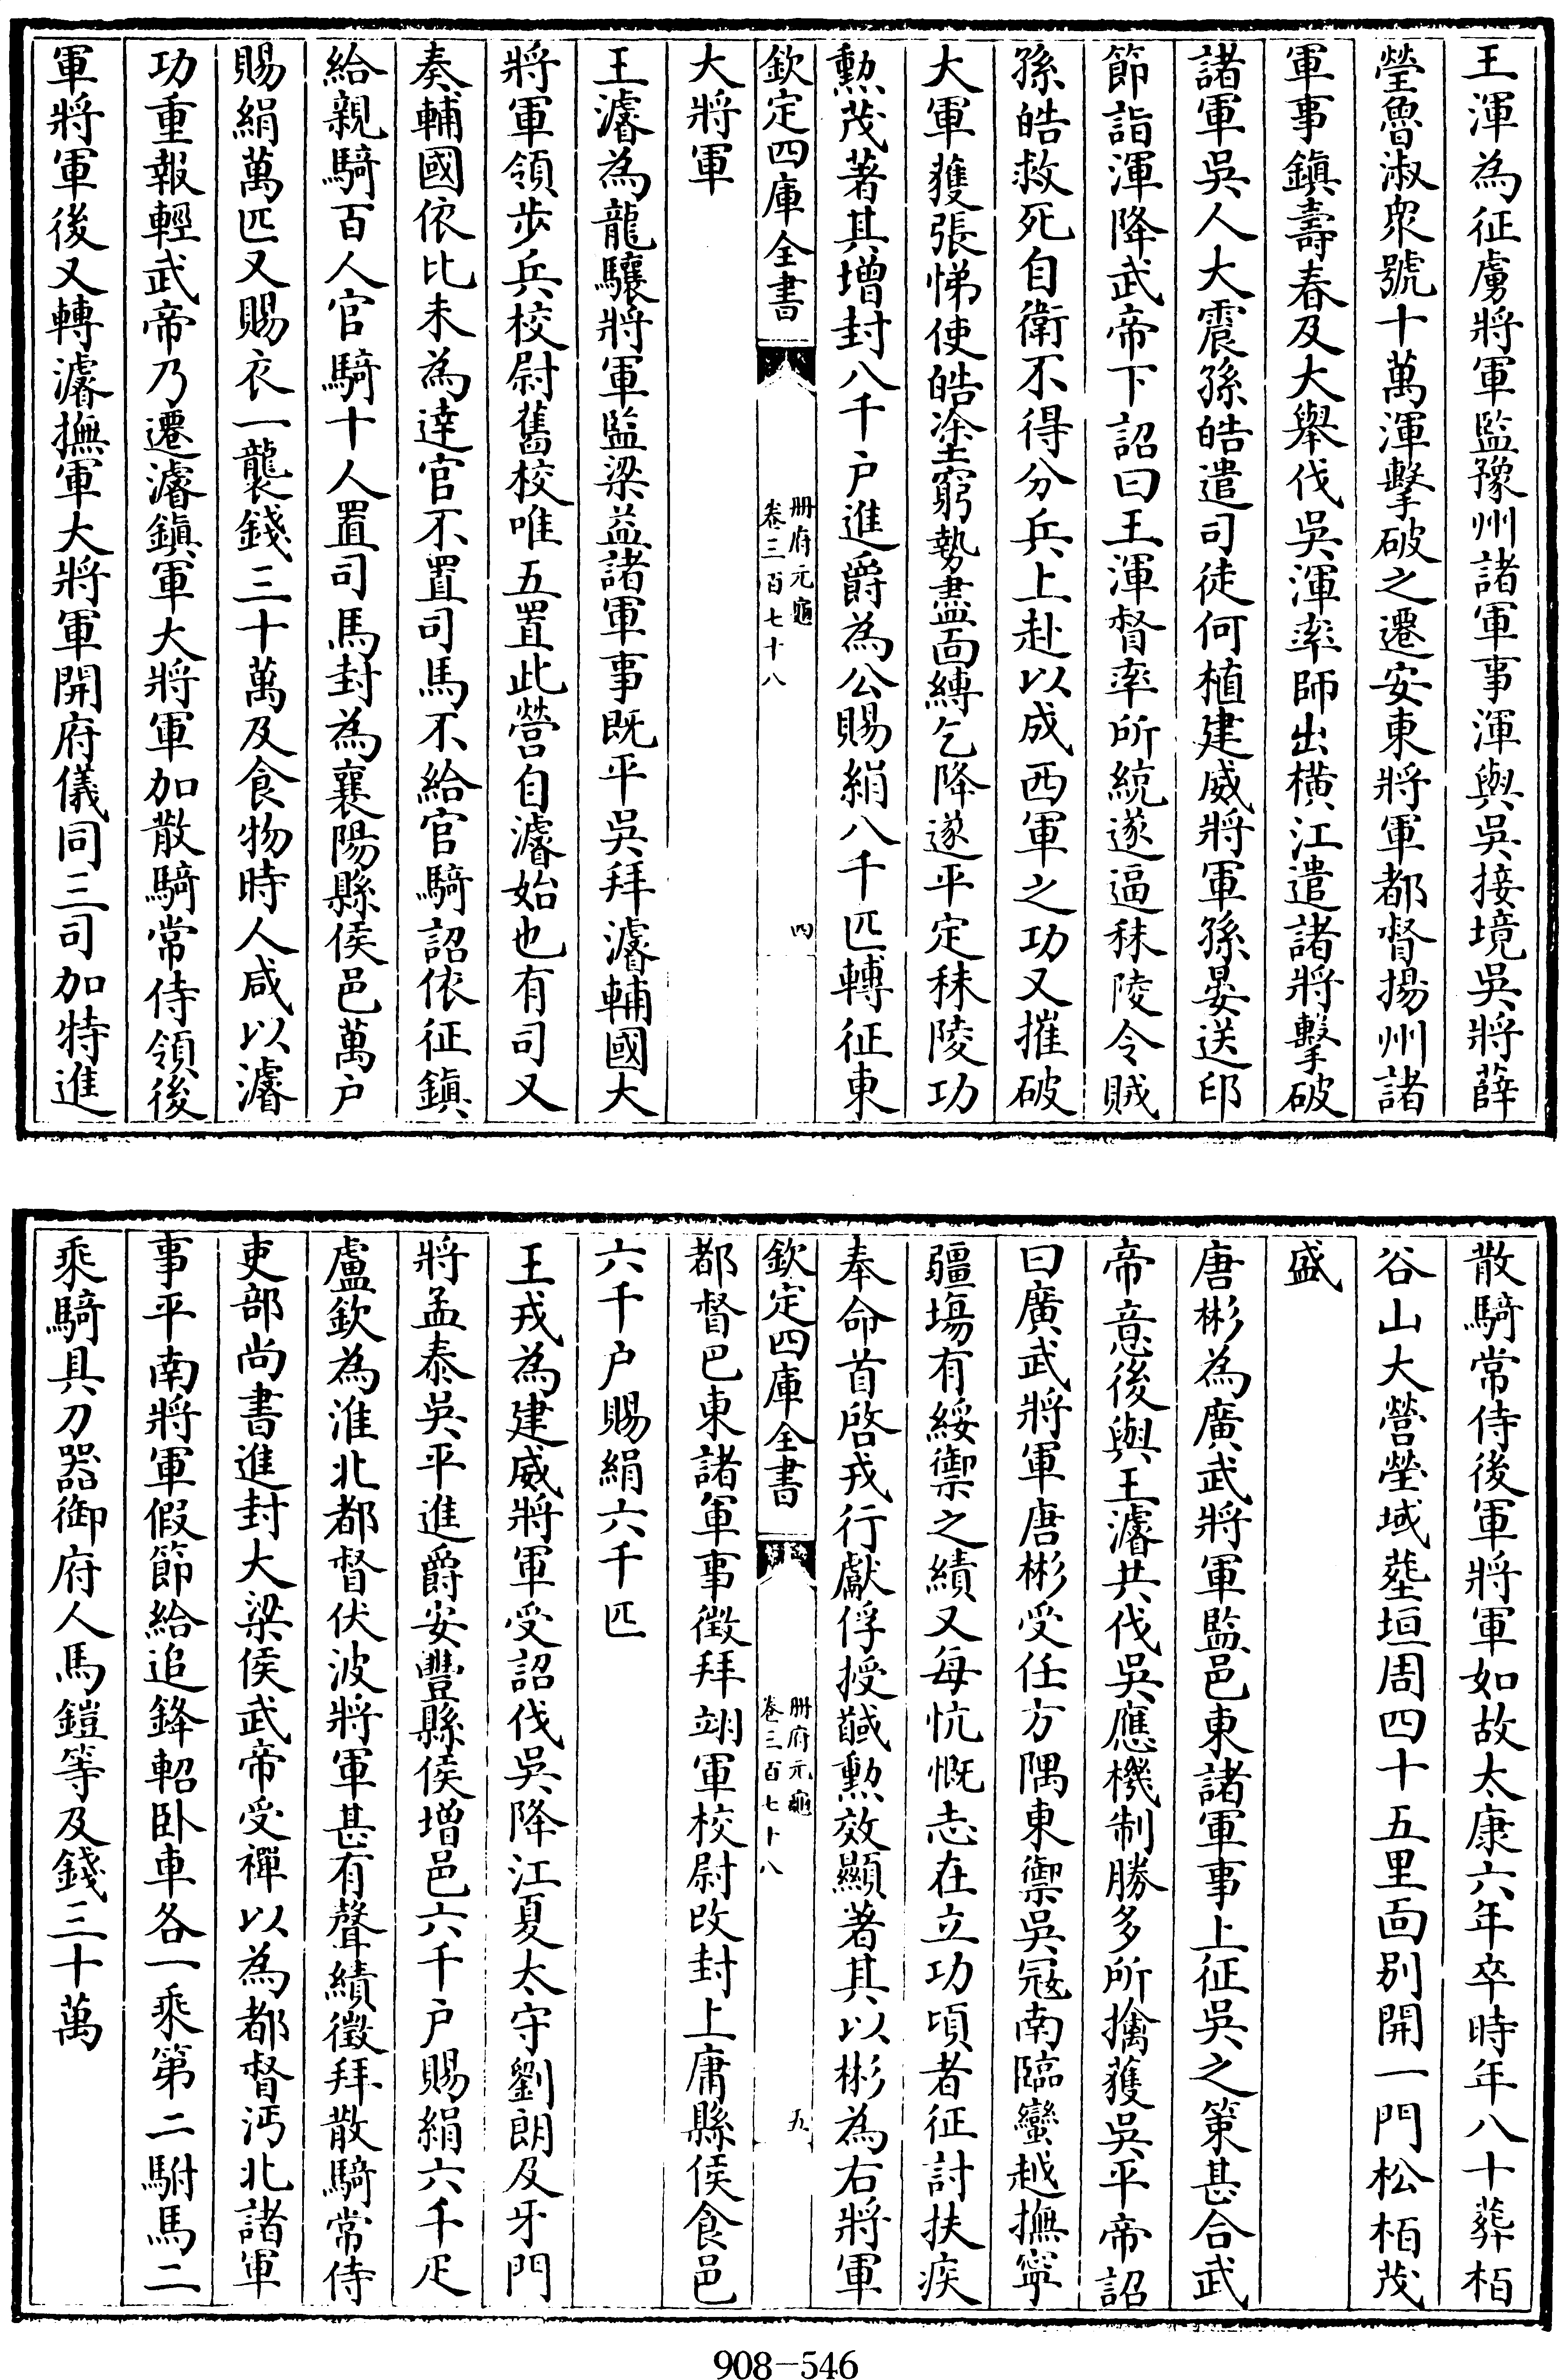 王渾為征虜將軍監豫州諸軍事渾與吳接境吳將薛
瑩魯淑衆號十萬渾擊破之遷安東將軍都督揚州諸
軍事鎮壽春及大舉伐吳渾率師出橫江遣諸將擊破
諸軍吳人大震孫皓遣司徒何植建威將軍孫晏送印
節詣渾降武帝下詔曰王渾督率所統遂逼秣陵令賊
孫皓救死自衛不得分兵上赴以成西軍之功又摧破
大軍獲張悌使皓塗窮勢盡面縛乞降遂平定秣陵功
勲茂著其增封八千戶進爵為公賜絹八千匹轉征東
欽定四庫全書
冊府元龜
卷三百七十八
四
大將軍
王濬為龍驤將軍監梁益諸軍事既平吳拜濬輔國大
將軍領步兵校尉舊校唯五置此營自濬始也有司又
奏輔國依比未為達官不置司馬不給官騎詔依征鎮
給親騎百人官騎十人置司馬封為襄陽縣侯邑萬戶
賜絹萬匹又賜衣一襲錢三十萬及食物時人咸以濬
功重報輕武帝乃遷濬鎮軍大將軍加散騎常侍領後
軍將軍後又轉濬撫軍大將軍開府儀同三司加特進
散騎常侍後軍將軍如故太康六年卒時年八十葬栢
谷山大營塋域塟垣周四十五里面別開一門松栢茂
盛
唐彬為廣武將軍監邑東諸軍事上征吳之策甚合武
帝意後與王濬共伐吳應機制勝多所擒獲吳平帝詔
曰廣武將軍唐彬受任方隅東禦吳冦南臨蠻越撫寧
疆埸有綏禦之績又每忼慨志在立功頃者征討扶疾
奉命首啓戎行獻俘授馘勲效顯著其以彬為右將軍
欽定四庫全書
冊府元龜
卷三百七十八
五
都督巴東諸軍事徵拜翊軍校尉改封上庸縣侯食邑
六千戶賜絹六千匹
王戎為建威將軍受詔伐吳降江夏太守劉朗及牙門
將孟泰吳平進爵安豐縣侯增邑六千戶賜絹六千疋
盧欽為淮北都督伏波將軍甚有聲績徵拜散騎常侍
吏部尚書進封大梁侯武帝受禪以為都督沔北諸軍
事平南將軍假節給追鋒軺卧車各一乘第二駙馬二
乘騎具刀器御府人馬鎧等及錢三十萬
908-546